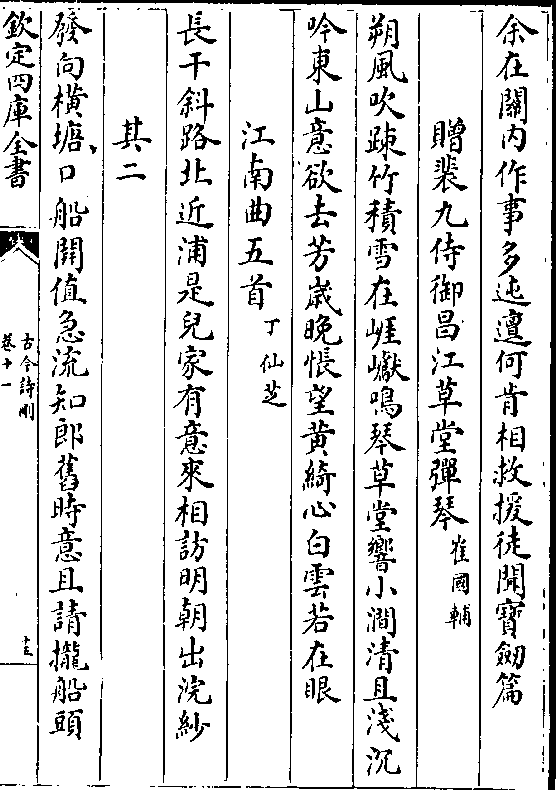 余在關内作事多迍邅何肯相救援徒聞寶劒篇
贈裴九侍御昌江草堂彈琴 崔國輔
朔風吹疎竹積雪在崖巘鳴琴草堂響小澗清且淺沉
吟東山意欲去芳歲晩悵望黄綺心白雲若在眼
江南曲五首 丁仙芝
長干斜路北近浦是兒家有意來相訪明朝出浣紗
其二
發向橫塘口船開值急流知郎舊時意且請攏船頭
欽定四庫全書
古今詩刪
卷十一
十三